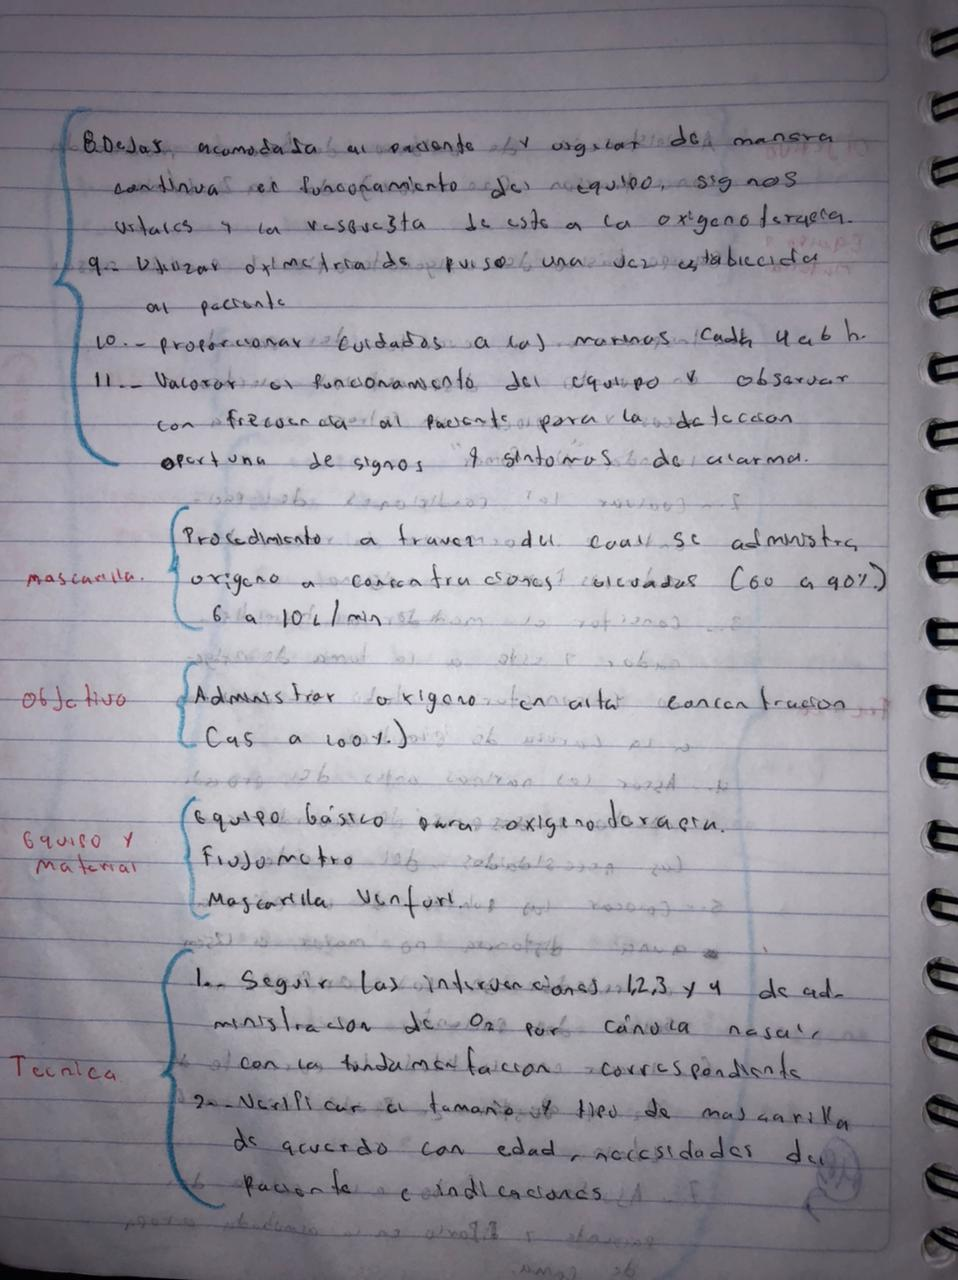 8 Dejar acomodada al paciente y vigilar de manera
continua el funcionamiento del equipo, signos
vitales y la respuesta de este a la oxigenoterapia.
9.- Utilizar oximetria de pulso una vez establecida
al paciente
10.- proporcionar cuidados a las narinas cada 4 a 6 h.
11.- Valorar el funcionamiento del equipo y observar
con frecuencia al paciente para la deteccion
oportuna de signos y sintomas de alarma.
mascarilla.
Procedimiento a travez del cual se administra
oxigeno a concentraciones elevadas (60 a 90%)
6 a 10 L/min
Objetivo
Administrar oxigeno en alta concentracion
(45 a 100%.)
Equipo y
Material
Equipo básico para oxigenoterapia.
Flujometro
Mascarilla Venturi.
Tecnica
1.- Seguir las intervenciones 1,2,3 y 4 de ad-
ministracion de O2 por cánula nasal,
con la fundamentacion correspondiente
2.- Verificar el tamaño y tipo de mascarilla
de acuerdo con edad, necesidades del
paciente e indicaciones